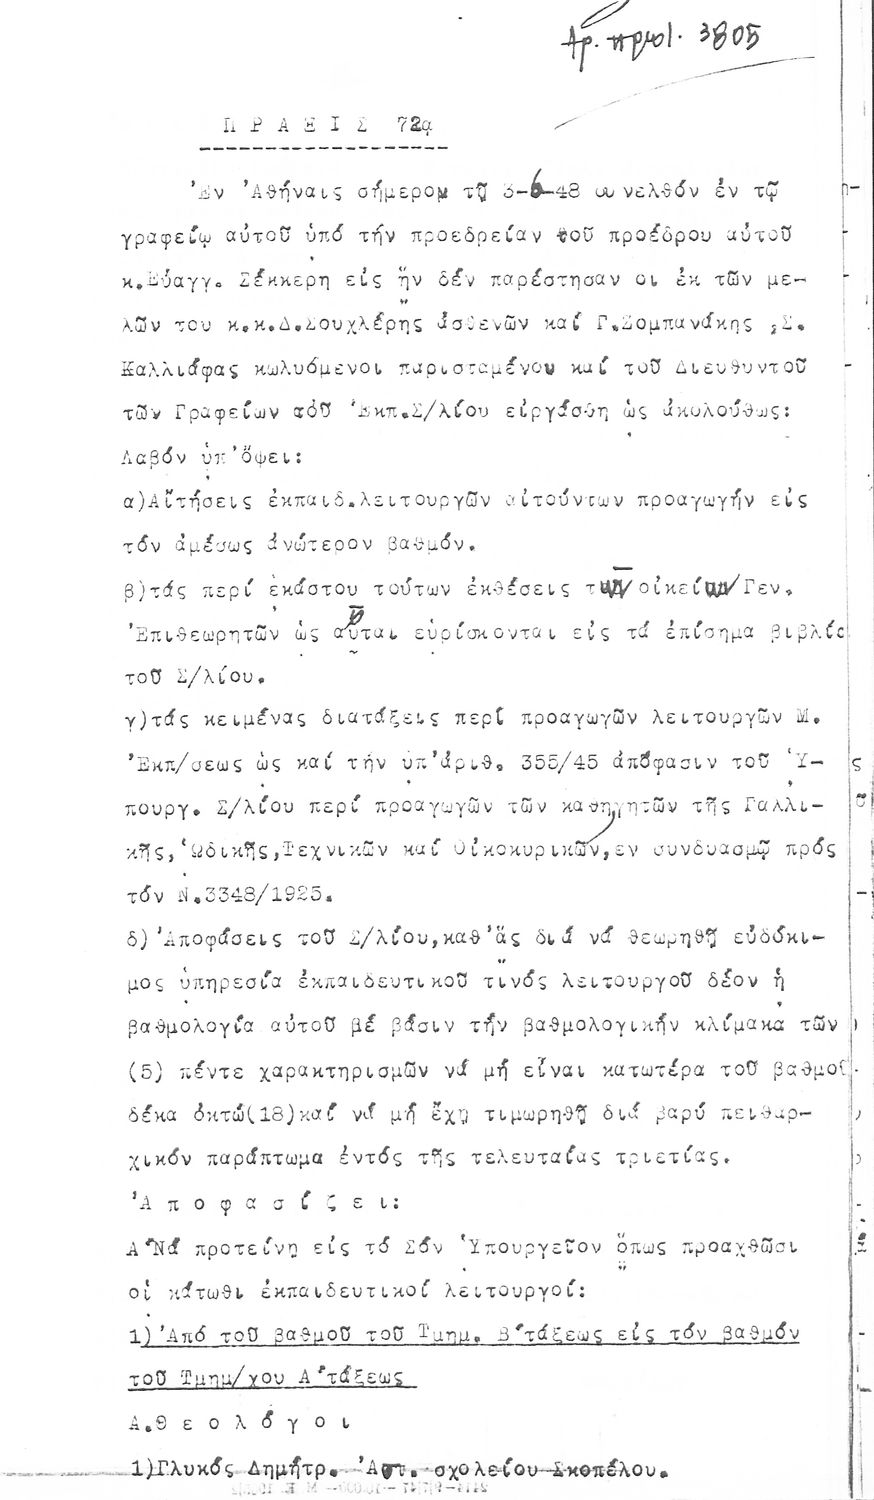 Αρ. πρωτ. 3805
Π Ρ Α Ξ Ι Σ 72α
Ἐν Ἀθήναις σήμερον τῇ 3-6-48 συνελθόν ἐν τῷ
γραφείῳ αὐτοῦ ὑπό τήν προεδρείαν τοῦ προέδρου αὐτοῦ
κ.Εὐαγγ. Σέκκερη εἰς ἥν δέν παρέστησαν οι ἐκ τῶν με-
λῶν του κ.κ.Δ.Σουχλέρης ἀσθενῶν καί Γ.Ζομπανάκης ,Σ.
Καλλιάφας κωλυόμενοι παρισταμένου καί τοῦ Διευθυντοῦ
τῶν Γραφείων τοῦ Ἐκπ.Σ/λίου εἰργάσθη ὡς ἀκολούθως:
Λαβόν ὑπ'ὄψει:
α)Αἴτήσεις ἐκπαιδ.λειτουργῶν αἰτούντων προαγωγήν εἰς
τόν ἀμέσως ἀνώτερον βαθμόν.
β)τάς περί ἑκάστου τούτων ἐκθέσεις τῶν οἰκείων Γεν.
Ἐπιθεωρητῶν ὡς αὗται εὑρίσκονται εἰς τά ἐπίσημα βιβλία
τοῦ Σ/λίου.
γ)τάς κειμένας διατάξεις περί προαγωγῶν λειτουργῶν Μ.
Ἐκπ/σεως ὡς καί τήν ὑπ'ἀριθ. 355/45 ἀπόφασιν τοῦ Ὑ-
πουργ. Σ/λίου περί προαγωγῶν τῶν καθηγητῶν τῆς Γαλλι-
κῆς,Ὠδικῆς,Τεχνικῶν καί Οἰκοκυρικῶν,εν συνδυασμῷ πρός
τόν Ν.3348/1925.
δ)Ἀποφάσεις τοῦ Σ/λίου,καθ'ἅς διά νά θεωρηθῇ εὐδόκι-
μος ὑπηρεσία ἐκπαιδευτικοῦ τινός λειτουργοῦ δέον ἡ
βαθμολογία αὐτοῦ μέ βάσιν τήν βαθμολογικήν κλίμακα τῶν
(5) πέντε χαρακτηρισμῶν νά μή εἶναι κατωτέρα τοῦ βαθμοῦ
δέκα ὀκτώ(18)καί νά μή ἔχῃ τιμωρηθῇ διά βαρύ πειθαρ-
χικόν παράπτωμα ἐντός τῆς τελευταίας τριετίας.
Ἀ π ο φ α σ ί ζ ε ι:
Α´Νά προτείνῃ εἰς τό Σόν Ὑπουργεῖον ὅπως προαχθῶσι
οἱ κάτωθι ἐκπαιδευτικοί λειτουργοί:
1)Ἀπό τοῦ βαθμοῦ τοῦ Τμημ. Β´τάξεως εἰς τόν βαθμόν
τοῦ Τμημ/χου Α´τάξεως
Α.Θ ε ο λ ό γ ο ι
1)Γλυκός Δημήτρ. Ἀστ. σχολείου Σκοπέλου.